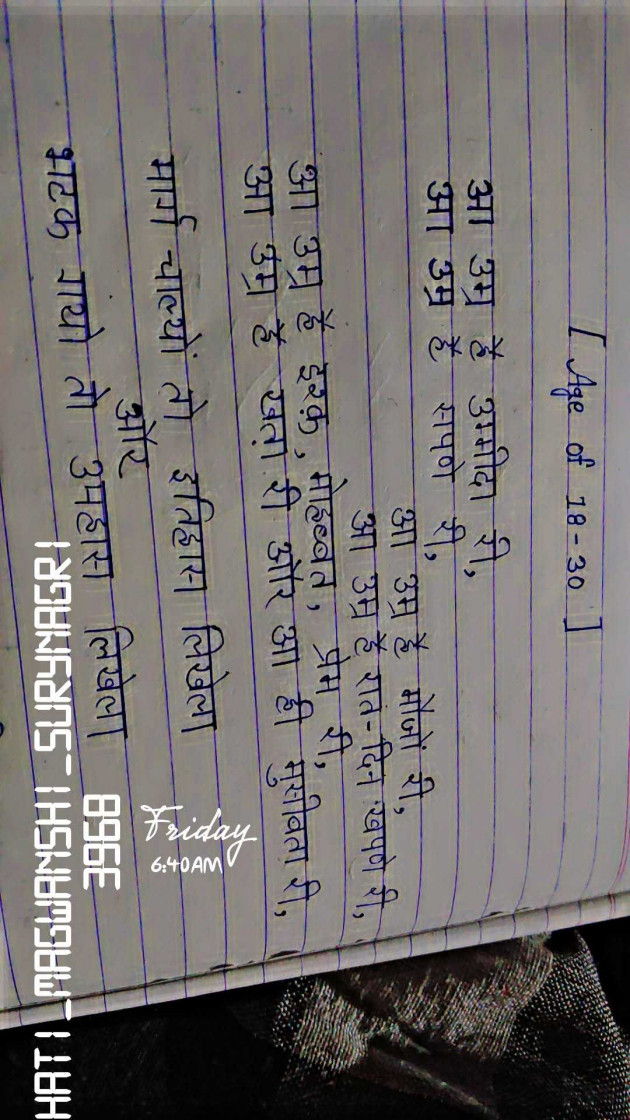 [ Age of 18-30 ]
आ उम्र है उम्मीदा री,
आ उम्र है सपणे री,
आ उम्र है मौजां री,
आ उम्र है रात-दिन खपणे री,
आ उम्र है इश्क़, मोहब्बत, प्रेम री,
आ उम्र है खता री और आ ही मुसीबता री,
मार्ग चाल्यों तो इतिहास लिखेला
और
भटक गयो तो उपहास लिखेला
Friday
6:40AM
HATI_MAGWANSHI_SURYNAGRI
3968